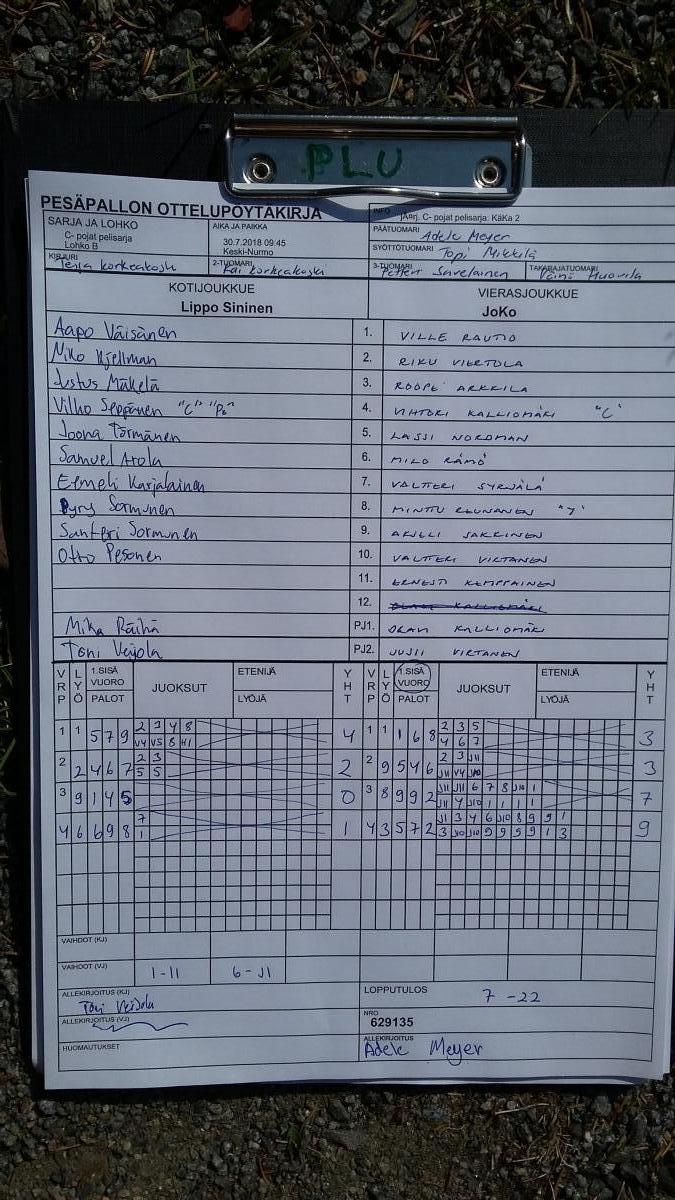 PLU
PESÄPALLON OTTELUPÖYTÄKIRJA
INFO
jAərj. C- pojat pelisarja: KäKa 2
SARJA JA LOHKO
C- pojat pelisarja
Lohko B
AIKA JA PAIKKA
30.7.2018 09:45
Keski-Nurmo
PÄÄTUOMARI Adele Meyer
SYÖTTÖTUOMARI Topi Mikkilä
KIRJURI Terja Korkeakoski
2-TUOMARI Kai Korkeakoski
3-TUOMARI Petteri Savelainen
TAKARAJATUOMARI Väinö Huovila
KOTIJOUKKUE
Lippo Sininen
VIERASJOUKKUE
JoKo
Aapo Väisänen 1. VILLE RAUTIO
Miko Kjellman 2. RIKU VIERTOLA
Justus Mäkelä 3. ROOPE ARKKILA
Vilho Seppänen "C" "Po" 4. VIHTORI KALLIOMÄKI "C"
Joona Törmänen 5. LASSI NORDMAN
Samuel Arola 6. MILO RÄMÖ
Eemeli Karjalainen 7. VALTTERI SYRJÄLÄ
Pyry Sormunen 8. MINTTU REUNANEN "J"
Santeri Sormunen 9. AKILLI SAKKINEN
Otto Pesonen 10. VALTTERI VIRTANEN
11. ERNESTI KEMPPAINEN
12.
Mika Räihä PJ1. OLAVI KALLIOMÄKI
Toni Veijola PJ2. JUJII VIRTANEN
VRP LYÖ 1.SISÄ VUORO PALOT JUOKSUT ETENIJÄ LYÖJÄ YHT VRP LYÖ 1.SISÄ VUORO PALOT JUOKSUT ETENIJÄ LYÖJÄ YHT
1 1 5 7 9 2 3 4 8 4 1 1 1 6 8 2 3 5 3
V4 V5 8 H1 4 6 7
2 2 4 6 7 2 3 2 2 9 5 4 6 2 3 J11 3
5 5 J11 V4 J10
3 9 1 4 5 0 3 8 9 9 2 J11 J11 6 7 8 J10 1 7
J11 4 J10 1 1 1 1
4 6 6 9 8 7 1 4 3 5 7 2 J1 3 4 6 J10 8 9 9 1 9
1 3 J0 J10 9 9 5 9 1 3
VAIHDOT (KJ)
VAIHDOT (VJ) 1-11 6-J1
ALLEKIRJOITUS (KJ)
Toni Veijola
LOPPUTULOS 7 - 22
ALLEKIRJOITUS (VJ)
NRO
629135
HUOMAUTUKSET
ALLEKIRJOITUS
Adele Meyer